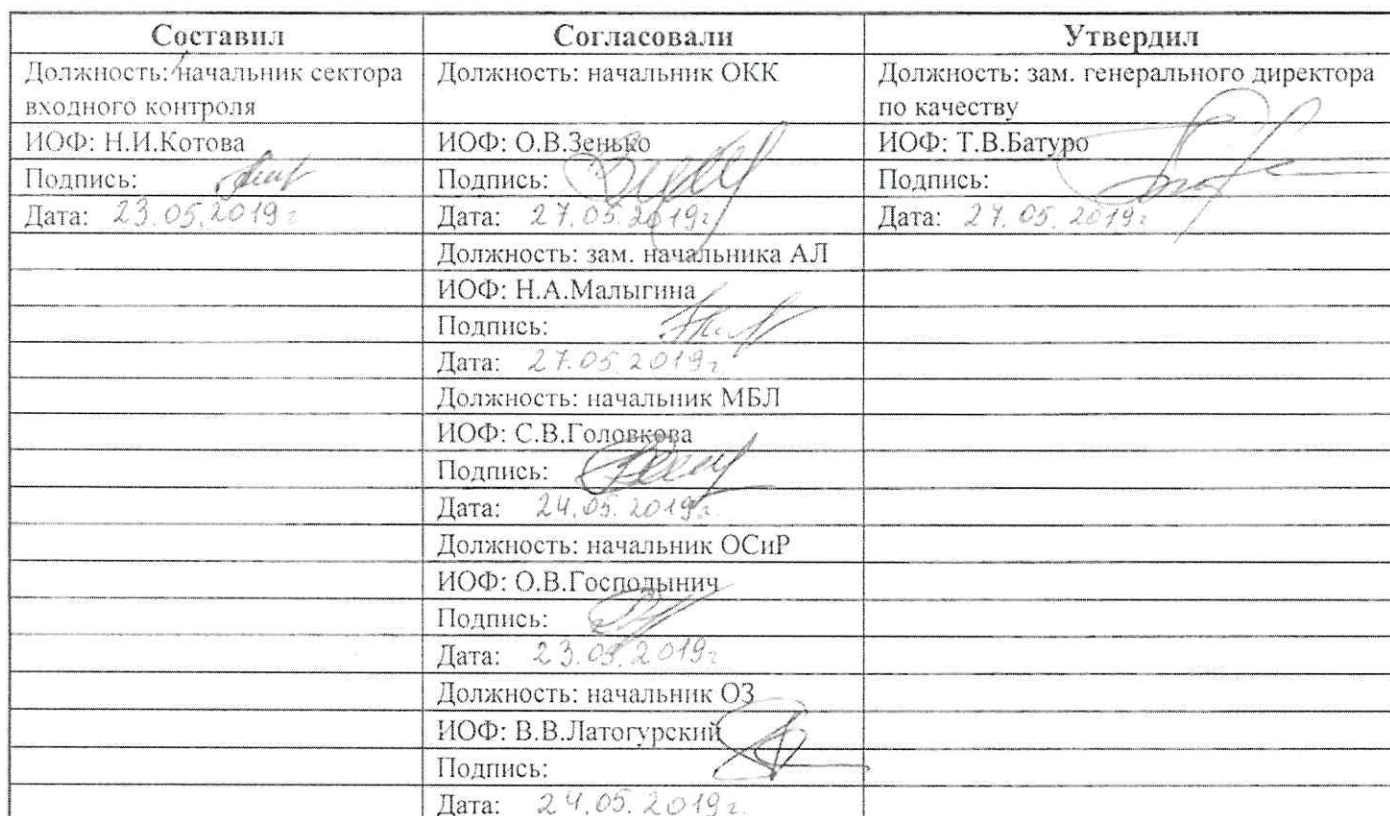 Составил Согласовали Утвердил
Должность: начальник сектора Должность: начальник ОКК Должность: зам. генерального директора
входного контроля по качеству
ИОФ: Н.И.Котова ИОФ: О.В.Зенько ИОФ: Т.В.Батуро
Подпись: Подпись: Подпись:
Дата: 23.05.2019г Дата: 27.05.2019г Дата: 27.05.2019г
Должность: зам. начальника АЛ
ИОФ: Н.А.Малыгина
Подпись:
Дата: 27.05.2019г
Должность: начальник МБЛ
ИОФ: С.В.Головкова
Подпись:
Дата: 24.05.2019г.
Должность: начальник ОСиР
ИОФ: О.В.Господынич
Подпись:
Дата: 23.05.2019г
Должность: начальник ОЗ
ИОФ: В.В.Латогурский
Подпись:
Дата: 24.05.2019г.